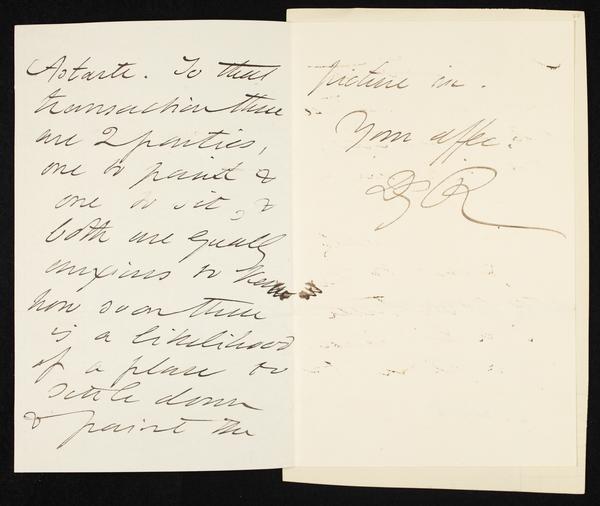 Astarte. To that
transaction there
are 2 parties,
one to paint &
one to sit, &
both are equally
anxious to know
how soon there
is a likelihood
of a place to
settle down
& paint the
picture in.
Your affec:
DGR